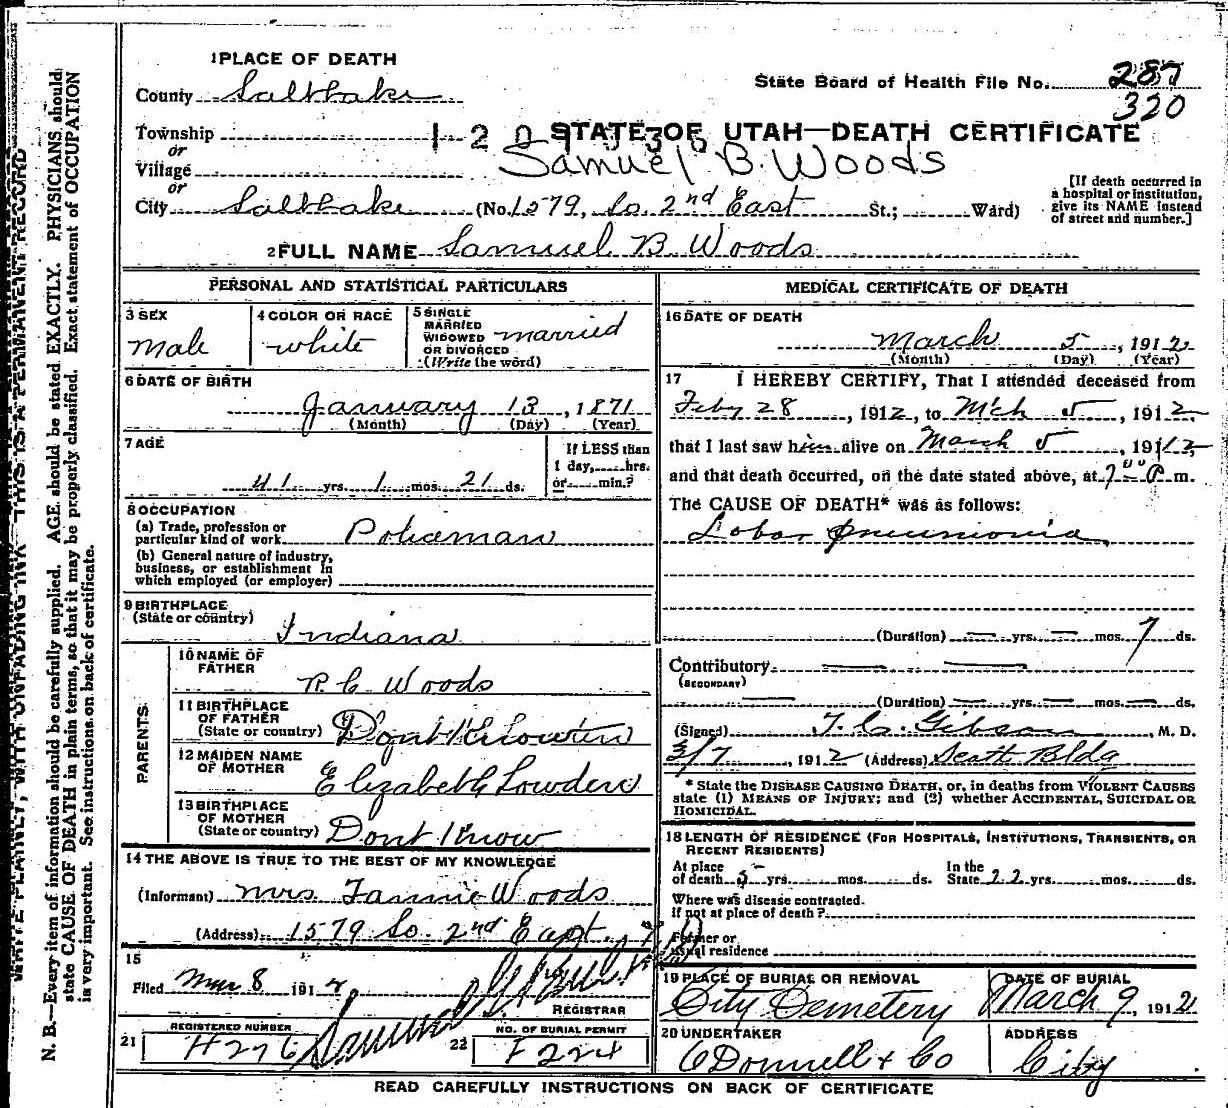 1 PLACE OF DEATH
County Salt Lake
State Board of Health File No. 287
320
Township
or
Village
or
STATE OF UTAH—DEATH CERTIFICATE
Samuel B. Woods
City Salt Lake (No. 1579, So. 2nd East St.; Ward)
[If death occurred in
a hospital or institution,
give its NAME instead
of street and number.]
2 FULL NAME Samuel B. Woods
PERSONAL AND STATISTICAL PARTICULARS
3 SEX
Male
4 COLOR OR RACE
white
5 SINGLE
MARRIED
WIDOWED
OR DIVORCED
(Write the word)
married
6 DATE OF BIRTH
January 13, 1871
(Month) (Day) (Year)
7 AGE
41 yrs. 1 mos. 21 ds.
If LESS than
1 day, hrs.
or min.?
8 OCCUPATION
(a) Trade, profession or
particular kind of work Policeman
(b) General nature of industry,
business, or establishment in
which employed (or employer)
9 BIRTHPLACE
(State or country)
Indiana
PARENTS.
10 NAME OF
FATHER
R. C. Woods
11 BIRTHPLACE
OF FATHER
(State or country) Dont
12 MAIDEN NAME
OF MOTHER
Elizabeth
13 BIRTHPLACE
OF MOTHER
(State or country) Dont Know
14 THE ABOVE IS TRUE TO THE BEST OF MY KNOWLEDGE
(Informant) Mrs. Fannie Woods
(Address) 1579 So. 2nd East
15
Filed Mar 8 191
REGISTRAR
21 REGISTERED NUMBER
H276
22 NO. OF BURIAL PERMIT
F224
MEDICAL CERTIFICATE OF DEATH
16 DATE OF DEATH
March 5, 1912
(Month) (Day) (Year)
17 I HEREBY CERTIFY, That I attended deceased from
Feby 28, 1912, to Mch 5, 1912
that I last saw him alive on March 5, 1912
and that death occurred, on the date stated above, at 7 P. m.
The CAUSE OF DEATH* was as follows:
Lobar pneumonia
(Duration) — yrs. — mos. 7 ds.
Contributory — —
(SECONDARY)
— (Duration) — yrs. — mos. — ds.
(Signed) T. C. Gibson, M. D.
3/7, 1912 (Address) Scott Bldg
* State the DISEASE CAUSING DEATH, or, in deaths from VIOLENT CAUSES
state (1) MEANS OF INJURY; and (2) whether ACCIDENTAL, SUICIDAL OR
HOMICIDAL.
18 LENGTH OF RESIDENCE (FOR HOSPITALS, INSTITUTIONS, TRANSIENTS, OR
RECENT RESIDENTS)
At place
of death 5 yrs. mos. ds.
In the
State 22 yrs. mos. ds.
Where was disease contracted.
If not at place of death?
Former or
usual residence
19 PLACE OF BURIAL OR REMOVAL
City Cemetery
DATE OF BURIAL
March 9, 1912
20 UNDERTAKER
O'Donnell & Co
ADDRESS
City
READ CAREFULLY INSTRUCTIONS ON BACK OF CERTIFICATE
WRITE PLAINLY, WITH UNFADING INK—THIS IS A PERMANENT RECORD
N. B.—Every item of information should be carefully supplied. AGE should be stated EXACTLY. PHYSICIANS should
state CAUSE OF DEATH in plain terms, so that it may be properly classified. Exact statement of OCCUPATION
is very important. See instructions on back of certificate.